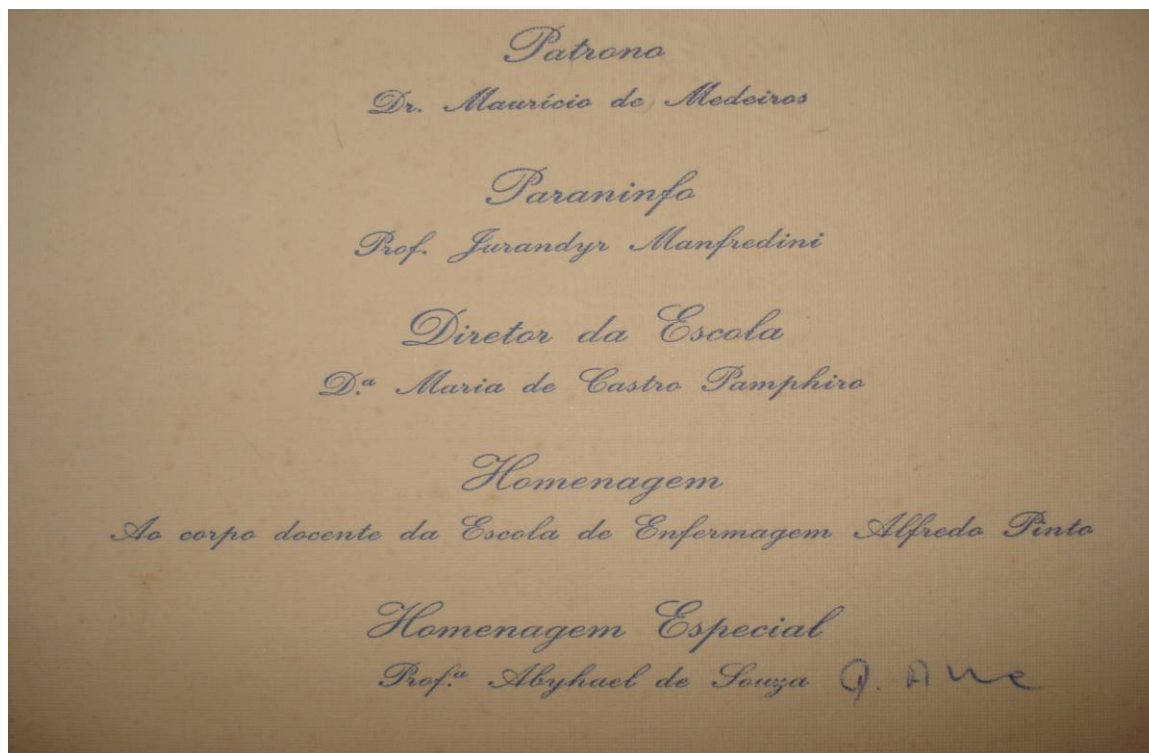 Patrono
Dr. Maurício de Medeiros
Paraninfo
Prof. Jurandyr Manfredini
Diretor da Escola
D.ª Maria de Castro Pamphiro
Homenagem
Ao corpo docente da Escola de Enfermagem Alfredo Pinto
Homenagem Especial
Prof.ª Abyhael de Souza